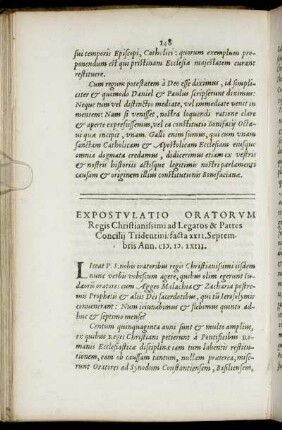 148
sui temporis Episcopi, Catholici: quorum exemplum pro-
ponendum est qui pristinam Ecclesiæ majestatem curant
restituere.
Cum regum potestatem à Deo esse diximus, id simpli-
citer & quemodo Daniel & Paulus scripserunt diximus:
Neque tum vel distinctio mediate, vel immediate venit in
mentem: Nam si venisset, nostra loquendi ratione clare
& aperte expressissemus, vel ea constitutio Bonifacij Octa-
vi quæ incipit, unam. Galli enim sumus, qui cum unam
sanctam Catholicam & Apostolicam Ecclesiam eiusque
omnia dogmata credamus, didicerimus etiam ex vestris
& nostris historiis actisque legitimis nostri parlamenti
causam & originem illius constitutionis Bonifacianæ.
EXPOSTVLATIO ORATORVM
Regis Christianissimi ad Legatos & Patres
Concilij Tridentini: facta XXII. Septem-
bris Ann. CIↃ. IↃ. LXIII.
Liceat P. S. nobis oratoribus regis Christianissimi iisdem
nunc verbis vobiscum agere, quibus olim egerunt Iu-
dæorū orators: cum Aggeo Malachia & Zacharia postre-
mis Prophetis & aliis Dei sacerdotibus, qui tū Ierosolymis
convenerant: Num ieiunabimus & flebimus quinto ad-
huc & septimo mense?
Centum quinquaginta anni sunt & multo amplius,
ex quibus Reges Christiani petierunt à Pontificibus Ro-
manis Ecclesiasticæ disciplinæ iam tum labentis restitu-
tionem, eam ob caussam tantum, nullam præterea, mise-
runt Oratores ad Synodum Constantiensem, Basiliensem,